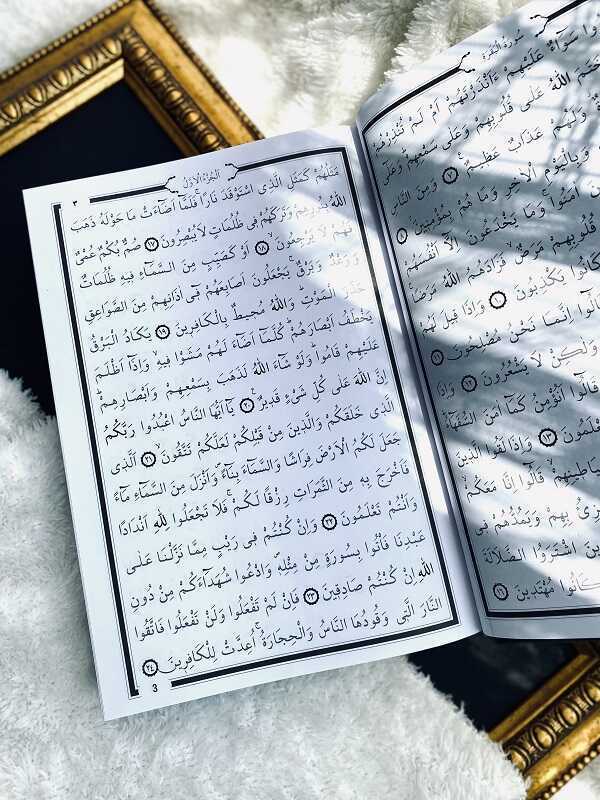 سُورَةُ الْبَقَرَةِ
سَوَآءٌ عَلَيْهِمْ ءَاَنْذَرْتَهُمْ اَمْ لَمْ تُنْذِرْهُمْ
اللّٰهُ عَلٰى قُلُوبِهِمْ وَعَلٰى سَمْعِهِمْ وَعَلٰٓى
وَلَهُمْ عَذَابٌ عَظِيمٌ ﴿٧﴾ وَمِنَ النَّاسِ
وَبِالْيَوْمِ الْاٰخِرِ وَمَا هُمْ بِمُؤْمِنِينَ ﴿٨﴾
اٰمَنُوا وَمَا يَخْدَعُونَ اِلَّٓا اَنْفُسَهُمْ
قُلُوبِهِمْ مَرَضٌ فَزَادَهُمُ اللّٰهُ مَرَضًا
كَانُوا يَكْذِبُونَ ﴿١٠﴾ وَاِذَا قِيلَ لَهُمْ
اِنَّمَا نَحْنُ مُصْلِحُونَ ﴿١١﴾
وَلٰكِنْ لَا يَشْعُرُونَ ﴿١٢﴾ وَاِذَا
قَالُٓوا اَنُؤْمِنُ كَمَٓا اٰمَنَ السُّفَهَٓاءُ
﴿١٣﴾ وَاِذَا لَقُوا الَّذِينَ
قَالُٓوا اِنَّا مَعَكُمْ
بِهِمْ وَيَمُدُّهُمْ فِى
اشْتَرَوُا الضَّلَالَةَ
كَانُوا مُهْتَدِينَ ﴿١٦﴾
اَلْجُزْءُ الْاَوَّلُ ٣
مَثَلُهُمْ كَمَثَلِ الَّذِى اسْتَوْقَدَ نَارًا فَلَمَّٓا اَضَٓاءَتْ مَا حَوْلَهُ ذَهَبَ
اللّٰهُ بِنُورِهِمْ وَتَرَكَهُمْ فِى ظُلُمَاتٍ لَا يُبْصِرُونَ ﴿١٧﴾ صُمٌّ بُكْمٌ عُمْىٌ
فَهُمْ لَا يَرْجِعُونَ ﴿١٨﴾ اَوْ كَصَيِّبٍ مِنَ السَّمَٓاءِ فِيهِ ظُلُمَاتٌ
وَرَعْدٌ وَبَرْقٌ يَجْعَلُونَ اَصَابِعَهُمْ فِٓى اٰذَانِهِمْ مِنَ الصَّوَاعِقِ
حَذَرَ الْمَوْتِ وَاللّٰهُ مُحِيطٌ بِالْكَافِرِينَ ﴿١٩﴾ يَكَادُ الْبَرْقُ
يَخْطَفُ اَبْصَارَهُمْ كُلَّمَٓا اَضَٓاءَ لَهُمْ مَشَوْا فِيهِ وَاِذَٓا اَظْلَمَ
عَلَيْهِمْ قَامُوا وَلَوْ شَٓاءَ اللّٰهُ لَذَهَبَ بِسَمْعِهِمْ وَاَبْصَارِهِمْ
اِنَّ اللّٰهَ عَلٰى كُلِّ شَىْءٍ قَدِيرٌ ﴿٢٠﴾ يَٓا اَيُّهَا النَّاسُ اعْبُدُوا رَبَّكُمُ
الَّذِى خَلَقَكُمْ وَالَّذِينَ مِنْ قَبْلِكُمْ لَعَلَّكُمْ تَتَّقُونَ ﴿٢١﴾ اَلَّذِى
جَعَلَ لَكُمُ الْاَرْضَ فِرَاشًا وَالسَّمَٓاءَ بِنَٓاءً وَاَنْزَلَ مِنَ السَّمَٓاءِ مَٓاءً
فَاَخْرَجَ بِهِ مِنَ الثَّمَرَاتِ رِزْقًا لَكُمْ فَلَا تَجْعَلُوا لِلّٰهِ اَنْدَادًا
وَاَنْتُمْ تَعْلَمُونَ ﴿٢٢﴾ وَاِنْ كُنْتُمْ فِى رَيْبٍ مِمَّا نَزَّلْنَا عَلٰى
عَبْدِنَا فَأْتُوا بِسُورَةٍ مِنْ مِثْلِهِ وَادْعُوا شُهَدَٓاءَكُمْ مِنْ دُونِ
اللّٰهِ اِنْ كُنْتُمْ صَادِقِينَ ﴿٢٣﴾ فَاِنْ لَمْ تَفْعَلُوا وَلَنْ تَفْعَلُوا فَاتَّقُوا
النَّارَ الَّتِى وَقُودُهَا النَّاسُ وَالْحِجَارَةُ اُعِدَّتْ لِلْكَافِرِينَ ﴿٢٤﴾
3